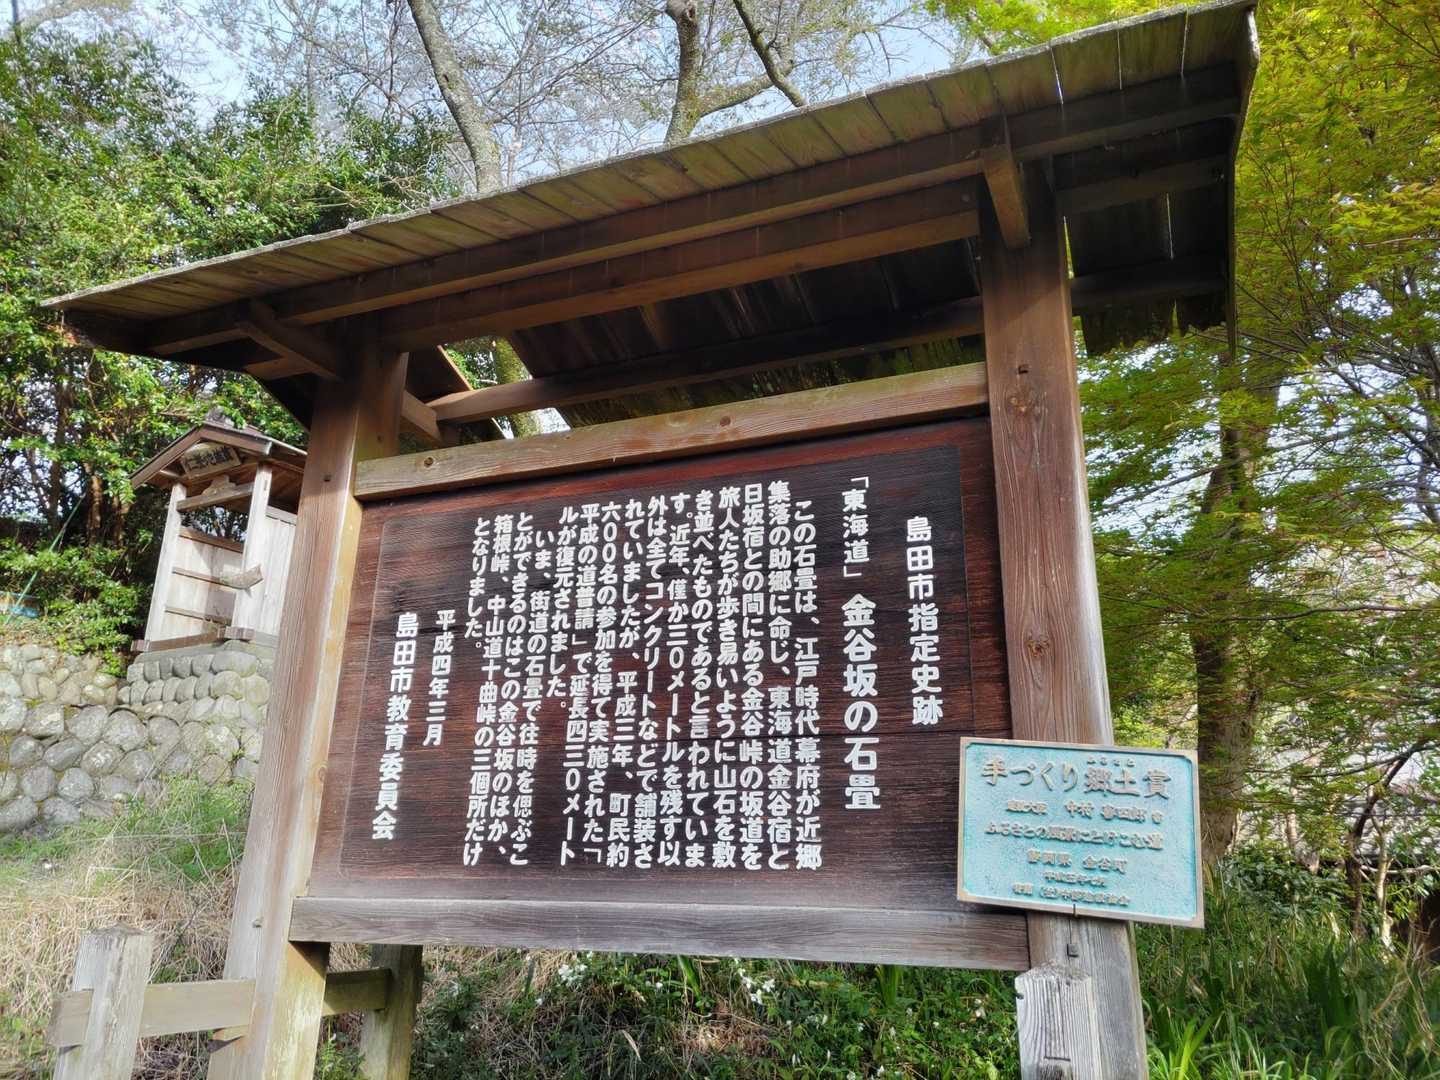 島田市指定史跡
「東海道」金谷坂の石畳
この石畳は、江戸時代幕府が近郷
集落の助郷に命じ、東海道金谷宿と
日坂宿との間にある金谷峠の坂道を
旅人たちが歩き易いように山石を敷
き並べたものであると言われていま
す。近年、僅か三〇メートルを残す以
外は全てコンクリートなどで舗装さ
れていましたが、平成三年、町民約
六〇〇名の参加を得て実施された「
平成の道普請」で延長四三〇メート
ルが復元されました。
いま、街道の石畳で往時を偲ぶこ
とができるのはこの金谷坂のほか、
箱根峠、中山道十曲峠の三個所だけ
となりました。
平成四年三月
島田市教育委員会
手づくり郷土賞
ふるさと
ふるさとの風景にとけこむ道
静岡県 金谷町